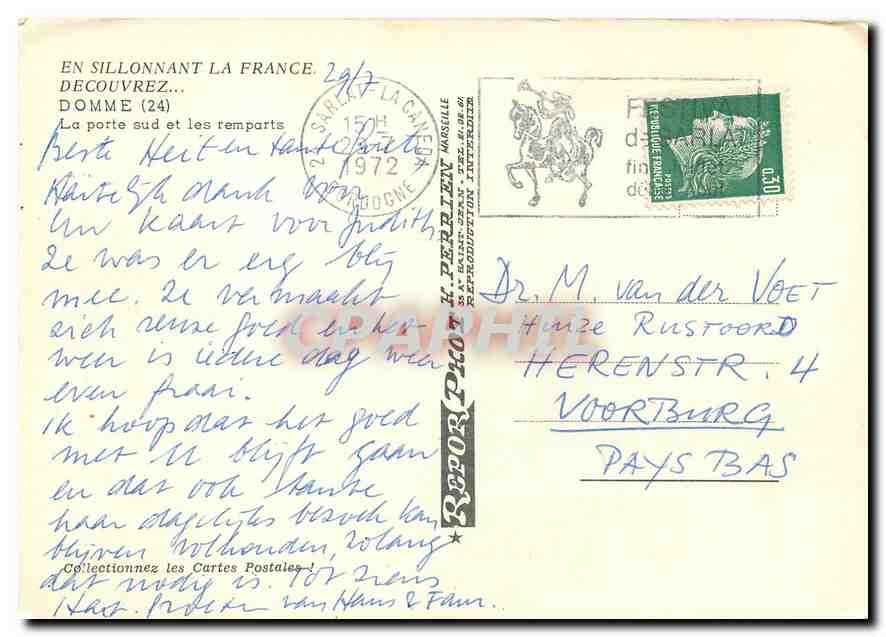 EN SILLONNANT LA FRANCE.
DECOUVREZ...
DOMME (24)
La porte sud et les remparts
29/7
Beste Heit en tante
Hartelijk dank voor
Uw kaart voor Judith
Ze was er erg blij
mee. Ze vermaakt
zich reuze goed en het
weer is iedere dag weer
even fraai.
Ik hoop dat het goed
met U blijft gaan
en dat ook tante
haar dagelijks bezoek kan
blijven volhouden, zolang
dat nodig is. Tot ziens
Hart. groeten van Hans & Fam.
Collectionnez les Cartes Postales !
24 SARLAT-LA CANEDA
15 H
1972
DORDOGNE
REPOR PHOT K. PERRIEN MARSEILLE
35 Ad SAINT-JEAN - TEL. 61-02-67
REPRODUCTION INTERDITE
CPARPHIL
REPUBLIQUE FRANCAISE
POSTES
0,30
Dr. M. van der VOET
Huize RUSTOORD
HERENSTR. 4
VOORBURG
PAYS BAS